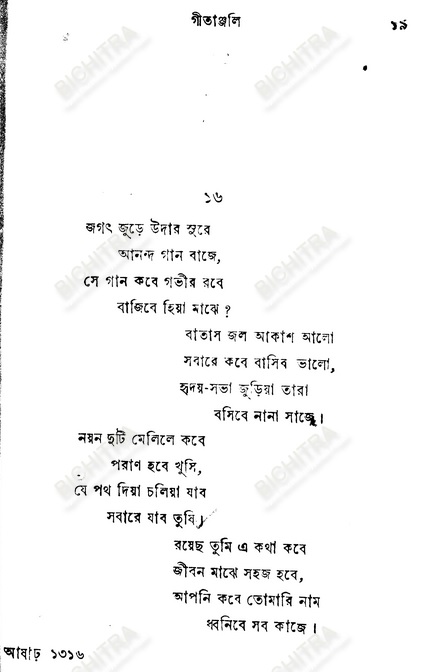 গীতাঞ্জলি ১৯
১৬
জগৎ জুড়ে উদার সুরে
আনন্দ গান বাজে,
সে গান কবে গভীর রবে
বাজিবে হিয়া মাঝে ?
বাতাস জল আকাশ আলো
সবারে কবে বাসিব ভালো,
হৃদয়-সভা জুড়িয়া তারা
বসিবে নানা সাজে।
নয়ন দুটি মেলিলে কবে
পরাণ হবে খুসি,
যে পথ দিয়া চলিয়া যাব
সবারে যাব তুষি।
রয়েছ তুমি এ কথা কবে
জীবন মাঝে সহজ হবে,
আপনি কবে তোমারি নাম
ধ্বনিবে সব কাজে।
আষাঢ় ১৩১৬
BICHITRA
BICHITRA
BICHITRA
BICHITRA
BICHITRA
BICHITRA
BICHITRA
BICHITRA